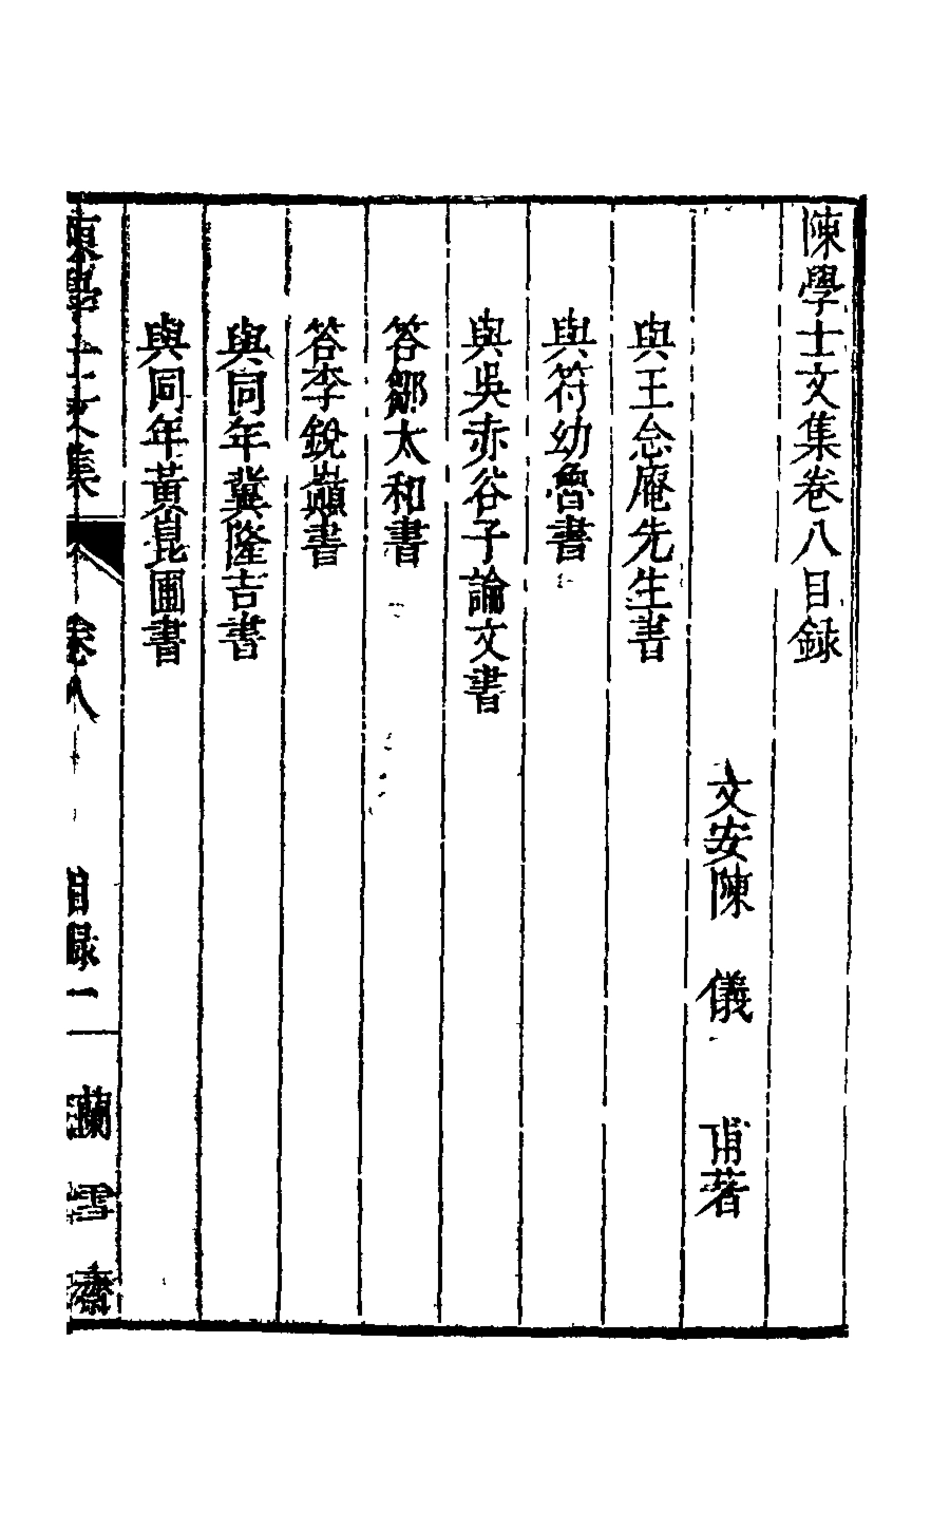 陳學士文集卷八目録
文安陳儀甫著
與王念庵先生書
與符幼魯書
與吳赤谷子論文書
答鄒太和書
答李銳巔書
與同年冀隆吉書
與同年黃崑圃書
陳學士文集 卷八 目録一 蘭雪齋